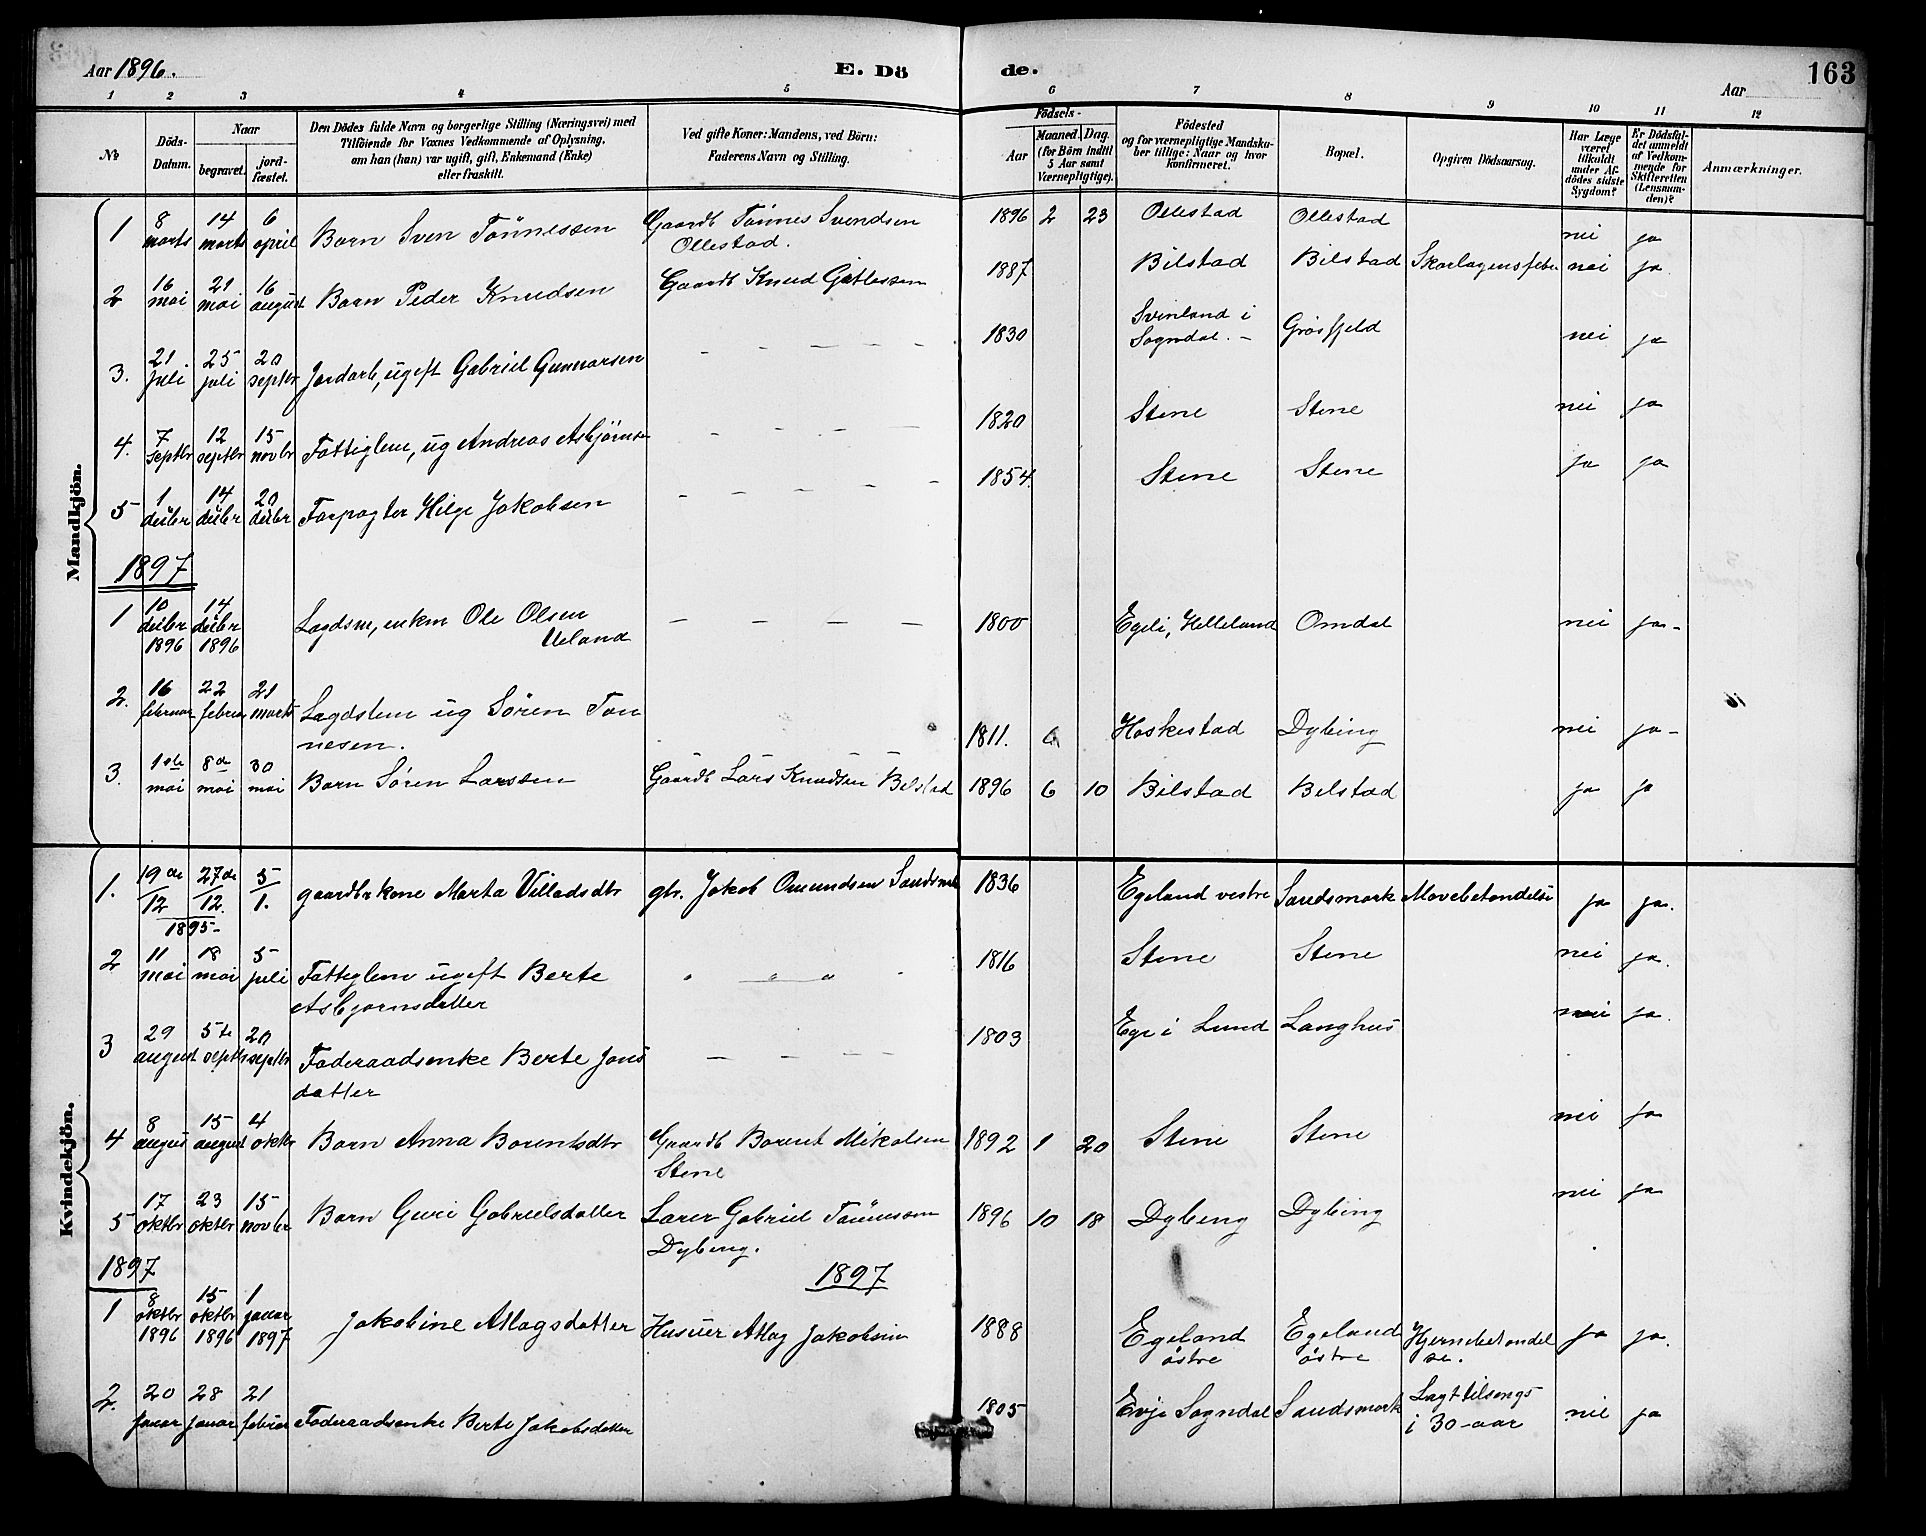 Aar 1896.
E. Dö
de.
Aar
163
1 2 3 4 5 6 7 8 9 10 11 12
№
Döds-Datum.
Naar
begravet.
jord-fæstet.
Den Dödes fulde Navn og borgerlige Stilling (Næringsvei) med
Tilföiende for Voxnes Vedkommende af Oplysning,
om han (hun) var ugift, gift, Enkemand (Enke)
eller fraskilt.
Ved gifte Koner: Mandens, ved Börn:
Faderens Navn og Stilling.
Födsels-
Aar
Maaned. Dag.
(for Börn indtil
5 Aar samt
Værnepligtige).
Födested
og for værnepligtige Mandska-
ber tillige: Naar og hvor
konfirmeret.
Bopæl.
Opgiven Dödsaarsag.
Har Læge
været
tilkaldt
under Af-
dödes sidste
Sygdom?
Er Dödsfal-
det anmeldt
af Vedkom-
mende for
Skifteretten
(Lensman-
den)?
Anmærkninger.
Mandkjön.
1 8 marts 14 marts 6 april Barn Sven Tönnessen Gaardb Tönnes Svendsen Ollestad. 1896 2 23 Ollestad Ollestad nei ja
2 16 mai 21 mai 16 august Barn Peder Knudsen Gaardb Knud Gitlessen 1887 Bilstad Bilstad Skarlagensfeber nei ja
3. 21 juli 25 juli 20 septbr Jordarb, ugift Gabriel Gunnarsen - - - - - 1830 Svinland i Sogndal. - Grösfjeld nei ja
4. 7 septbr 12 septbr 15 novbr Fattiglem, ug Andreas Asbjörnsen - - - - 1820 Stene Stene nei ja
5 1 decbr 14 decbr 20 decbr Forpagter Helge Jakobsen - - - - - 1854. Stene Stene ja ja
1897
1 10 decbr 1896 14 decbr 1896 Lægdsm, enkm Ole Olsen Ueland - - - - 1800 Egeli, Helleland Omdal nei ja-
2. 16 februar 22 februar 21 marts Lægdslem ug Sören Tönnesen. 1811. Haskestad Dybing nei ja-
3. 1ste mai 8de mai 30 mai Barn Sören Larssen Gaardb Lars Knudsen Bilstad 1896 6 10 Bilstad Bilstad ja ja
Kvindekjön.
1. 19de/12 27de/12. 1895- 5/1. gaardbrkone Marta Villadsdtr gbr. Jakob Omundsen Sandsmark 1836 Egeland vestre Sandsmark Mavebetændelse ja ja.
2 11 mai 18 mai 5 juli Fattiglem ugift Berte Asbjornsdatter " " " " 1816 Stene Stene nei ja.
3 29 august 5te septbr 20 septbr Foderaadsenke Berte Jonsdatter - - - - 1803 Ege i Lund Langhus nei ja.
4 8 august 15 august 4 oktbr Barn Anna Borentsdtr Gaardb Borent Mikalsen Stene 1892 1 20 Stene Stene nei ja
5 17 oktbr 23 oktbr 15 novbr Barn Guri Gabrielsdatter Lærer Gabriel Tönnessen Dybing. 1896 10 18 Dybing Dybing nei ja
1897
1897
1 8 oktbr 1896 15 oktbr 1896 1 januar 1897 Jakobine Atlagsdatter Husuer Atlag Jakobsen 1888 Egeland östre Egeland östre Hjernebetændelse. ja ja.
2. 20 januar 28 januar 21 februar Foderaadsenke Berte Jakobsdatter 1805 Evje Sogndal Sandsmark Lagt tilsengs i 30-aar nei ja